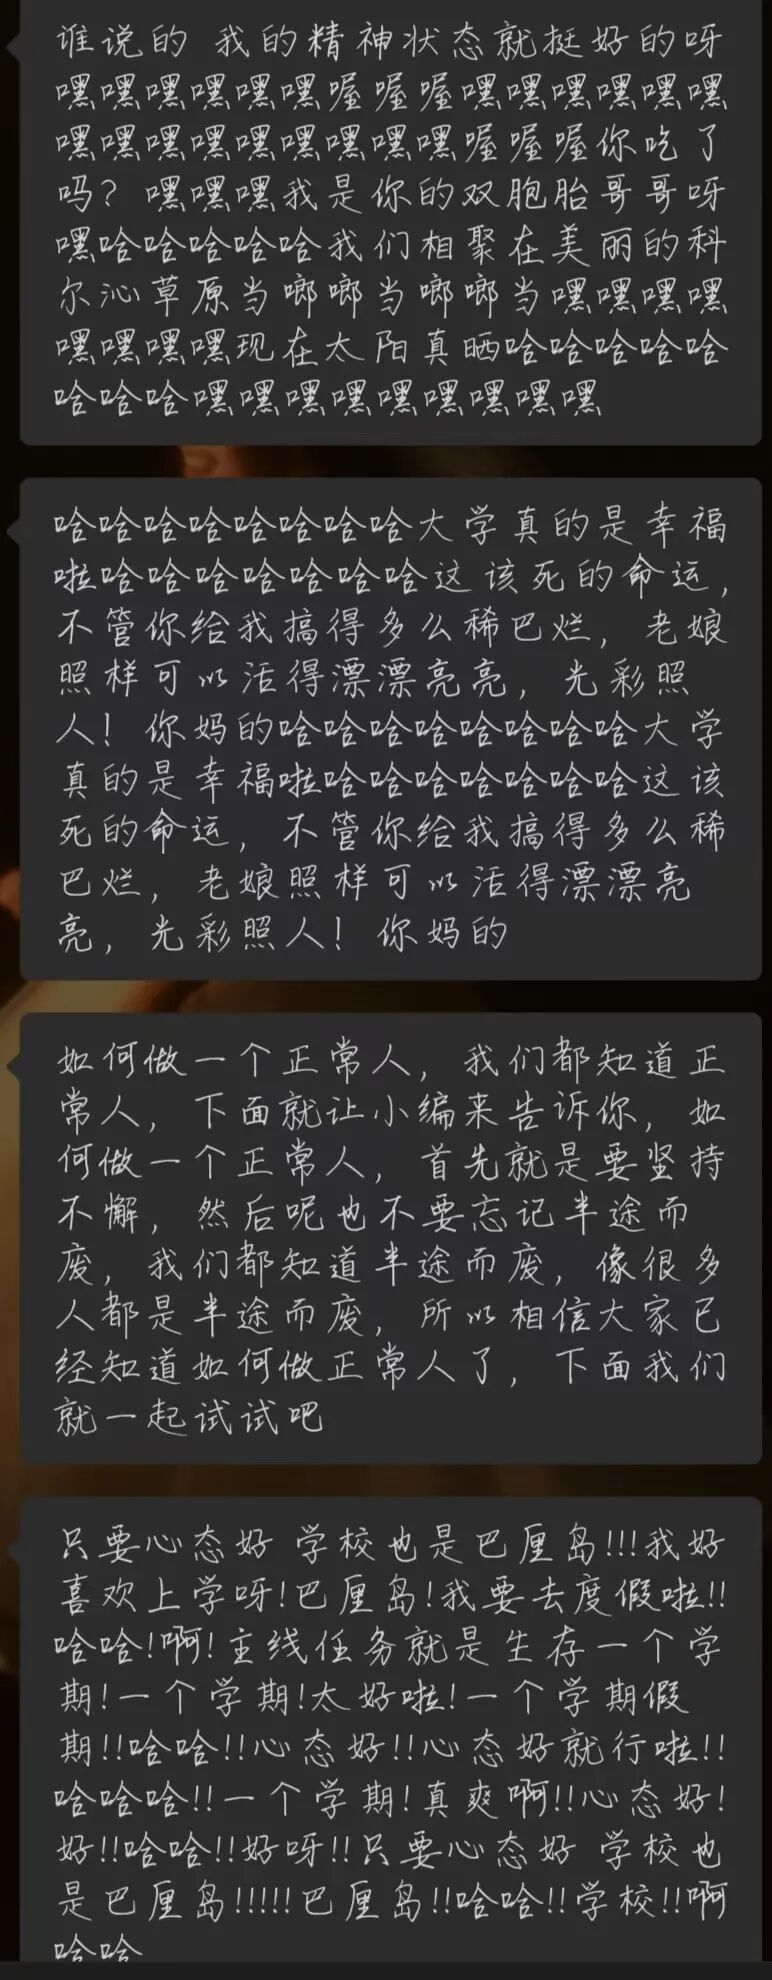 谁说的 我的精神状态就挺好的呀
嘿嘿嘿嘿嘿嘿喔喔喔嘿嘿嘿嘿嘿嘿
嘿嘿嘿嘿嘿嘿嘿嘿嘿喔喔喔你吃了
吗？嘿嘿嘿我是你的双胞胎哥哥呀
嘿哈哈哈哈哈我们相聚在美丽的科
尔沁草原当啷啷当啷啷当嘿嘿嘿嘿
嘿嘿嘿嘿现在太阳真晒哈哈哈哈哈
哈哈哈嘿嘿嘿嘿嘿嘿嘿嘿嘿
哈哈哈哈哈哈哈哈大学真的是幸福
啦哈哈哈哈哈哈哈哈这该死的命运，
不管你给我搞得多么稀巴烂，老娘
照样可以活得漂漂亮亮，光彩照
人！你妈的哈哈哈哈哈哈哈哈大学
真的是幸福啦哈哈哈哈哈哈哈这该
死的命运，不管你给我搞得多么稀
巴烂，老娘照样可以活得漂漂亮
亮，光彩照人！你妈的
如何做一个正常人，我们都知道正
常人，下面就让小编来告诉你，如
何做一个正常人，首先就是要坚持
不懈，然后呢也不要忘记半途而
废，我们都知道半途而废，像很多
人都是半途而废，所以相信大家已
经知道如何做正常人了，下面我们
就一起试试吧
只要心态好 学校也是巴厘岛!!!我好
喜欢上学呀!巴厘岛!我要去度假啦!!
哈哈!啊!主线任务就是生存一个学
期!一个学期!太好啦!一个学期假
期!!哈哈!!心态好!!心态好就行啦!!
哈哈哈!!一个学期!真爽啊!!心态好!
好!!哈哈!!好呀!!只要心态好 学校也
是巴厘岛!!!!!巴厘岛!!哈哈!!学校!!啊
哈哈